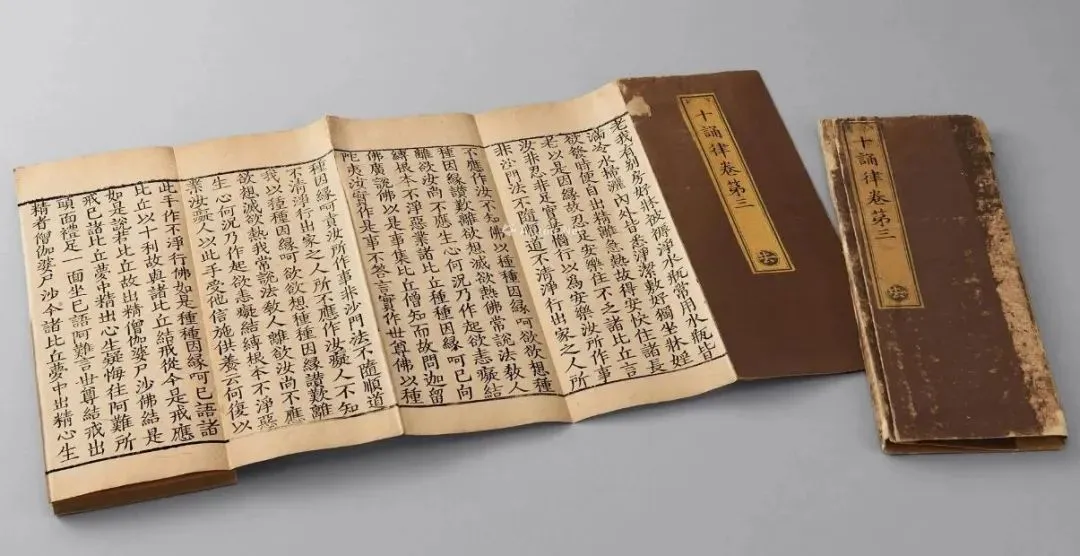 十誦律卷第三
十誦律卷第三
老我有別房好牀被褥淨水瓶常用水瓶皆
滿盛水掃灑內外皆悉淨潔數好獨坐牀婬
欲發時便自出精離急熱故得安快住諸長
老以是因緣故忍足安樂住不乏諸比丘言
汝非忍非足實苦惱行以為安樂汝所作事
非沙門法不隨順道不清淨行出家之人所
不應作汝不知佛以種種因緣呵欲欲想種
種因緣讚歎離欲想滅欲熱佛常說法教人
離欲汝尚不應生心何況乃作起欲恚癡結
縛根本不淨惡業諸比丘種種因緣呵已向
佛廣說佛以是事集比丘僧知而故問迦留
陀夷汝實作是事不答言實作世尊佛以種
種因緣呵責汝所作事非沙門法不隨順道
不清淨行出家之人所不應作汝癡人不知
我以種種因緣呵欲欲想種種因緣讚歎離
欲想滅欲熱我常說法教人離欲汝尚不應
生心何況乃作起欲恚癡結縛根本不淨惡
業汝癡人以此手受他信施供養云何復以
此手作不淨行佛如是種種因緣呵已語諸
比丘以十利故與諸比丘結戒從今是戒應
如是說若比丘故出精僧伽婆尸沙佛結是
戒已諸比丘夢中精出心生疑悔往阿難所
頭面禮足一面坐已語阿難言世尊結戒出
精者僧伽婆尸沙今諸比丘夢中出精心生